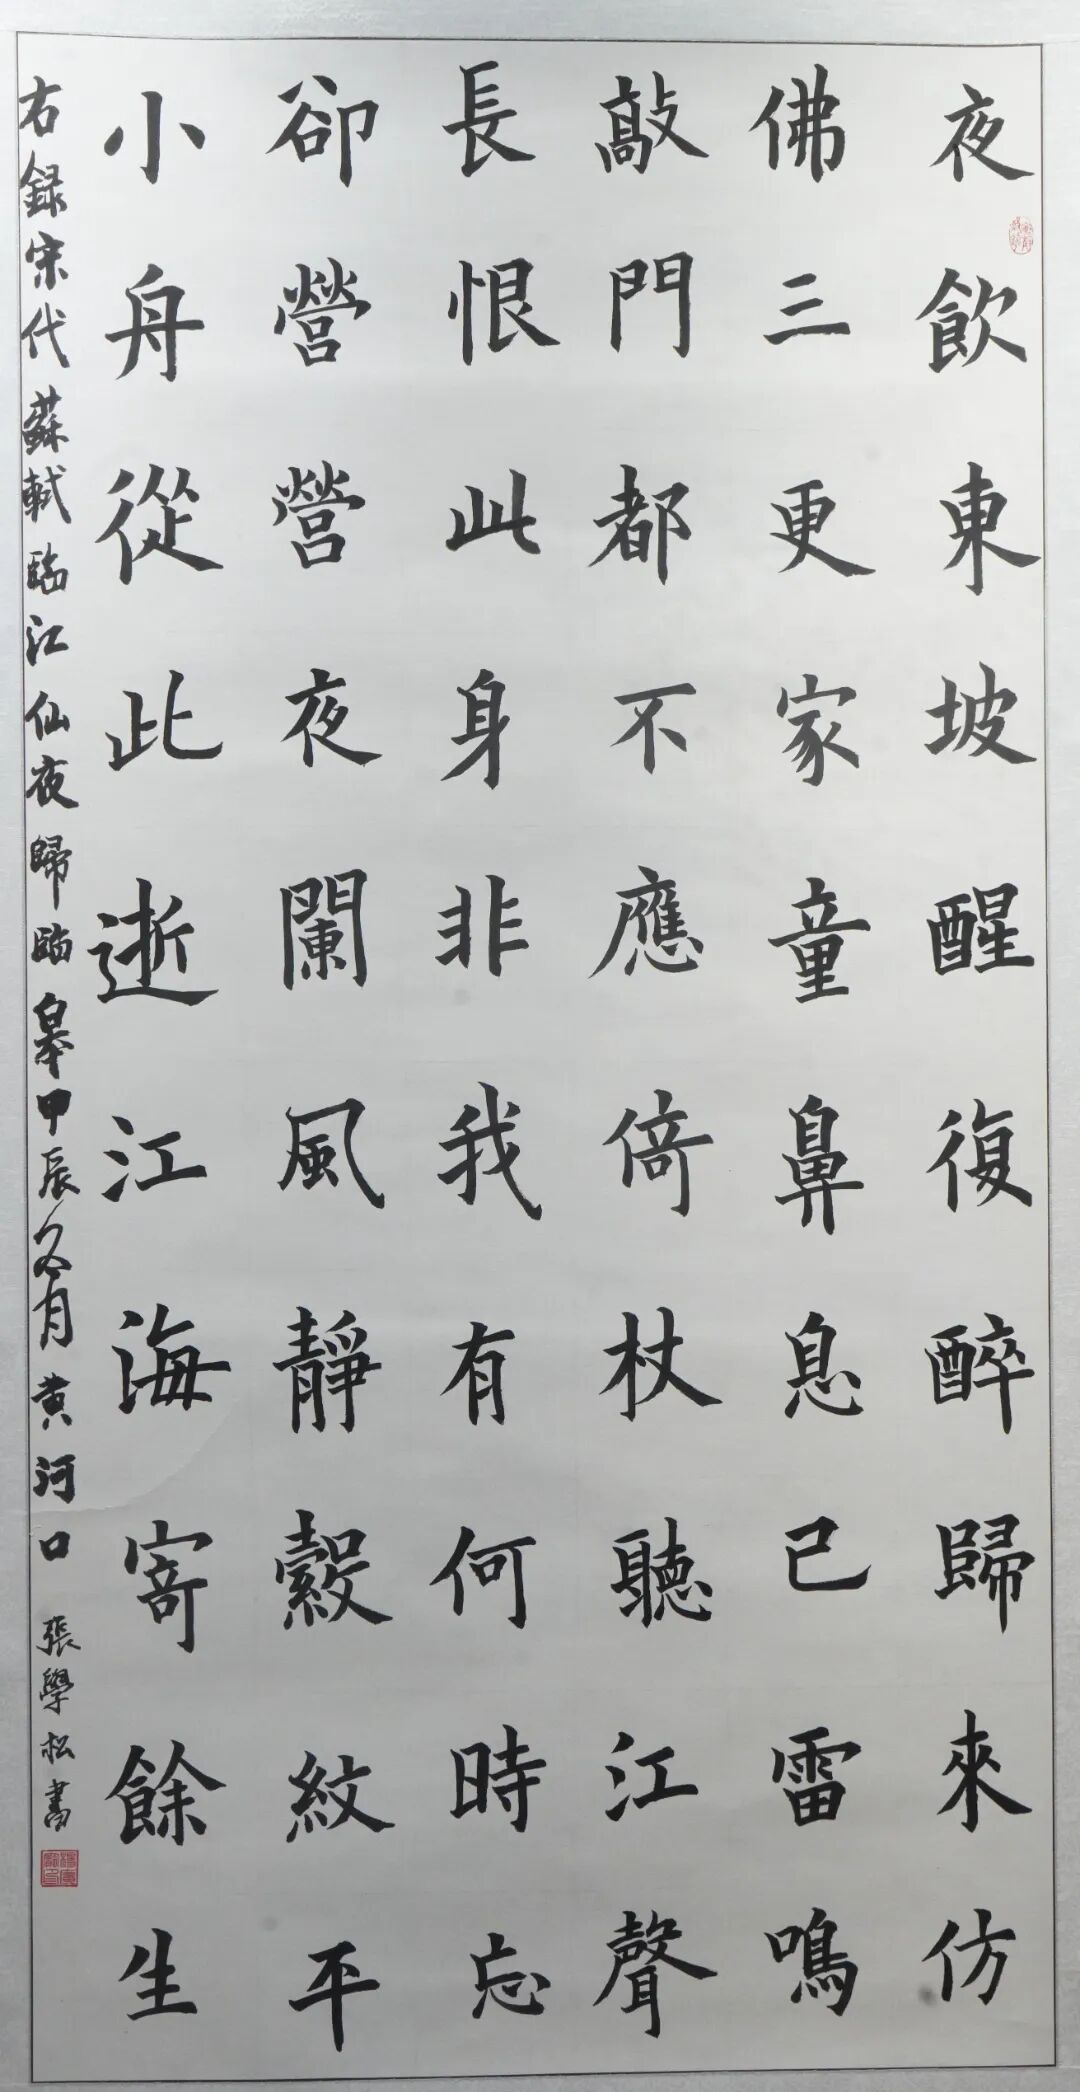 夜飲東坡醒復醉歸來仿
佛三更家童鼻息已雷鳴
敲門都不應倚杖聽江聲
長恨此身非我有何時忘
卻營營夜闌風靜縠紋平
小舟從此逝江海寄餘生
右録宋代蘇軾臨江仙夜歸臨皋甲辰冬月黄河口張學松書